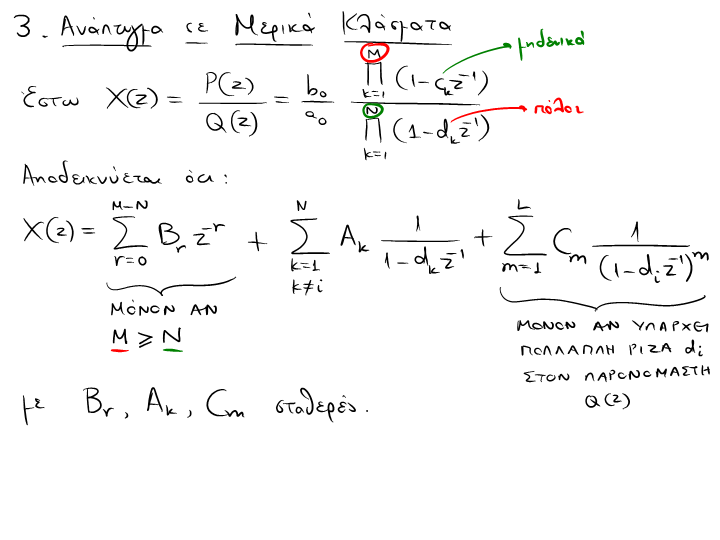 3. Ανάπτυγμα σε Μερικά Κλάσματα
Έστω X(z) = P(z)/Q(z) = b₀/a₀ ∏_{k=1}^{M} (1-c_k z⁻¹) / ∏_{k=1}^{N} (1-d_k z⁻¹)
μηδενικά
πόλοι
Αποδεικνύεται ότι:
X(z) = ∑_{r=0}^{M-N} B_r z^{-r} + ∑_{k=1, k≠i}^{N} A_k 1/(1-d_k z⁻¹) + ∑_{m=1}^{L} C_m 1/(1-d_i z⁻¹)^m
ΜΟΝΟΝ ΑΝ
M ⩾ N
ΜΟΝΟΝ ΑΝ ΥΠΑΡΧΕΙ
ΠΟΛΛΑΠΛΗ ΡΙΖΑ d_i
ΣΤΟΝ ΠΑΡΟΝΟΜΑΣΤΗ
Q(z)
με B_r, A_k, C_m σταθερές.